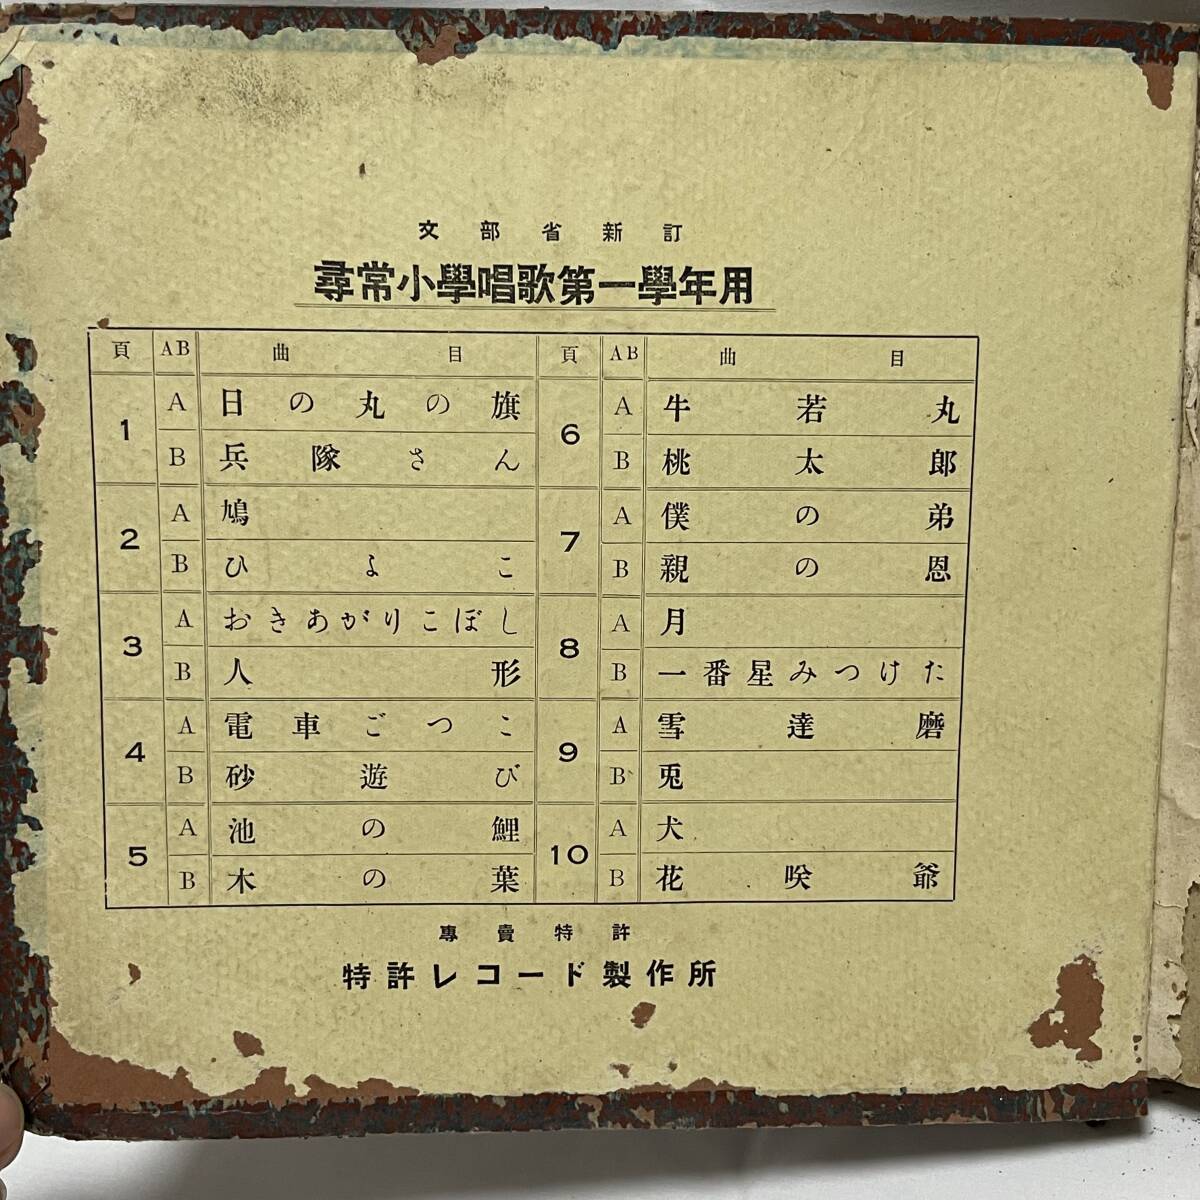 文部省新訂
尋常小學唱歌第一學年用
頁 AB 曲目 頁 AB 曲目
1 A 日の丸の旗 6 A 牛若丸
B 兵隊さん B 桃太郎
2 A 鳩 7 A 僕の弟
B ひよこ B 親の恩
3 A おきあがりこぼし 8 A 月
B 人形 B 一番星みつけた
4 A 電車ごつこ 9 A 雪達磨
B 砂遊び B 兎
5 A 池の鯉 10 A 犬
B 木の葉 B 花咲爺
專賣特許
特許レコード製作所